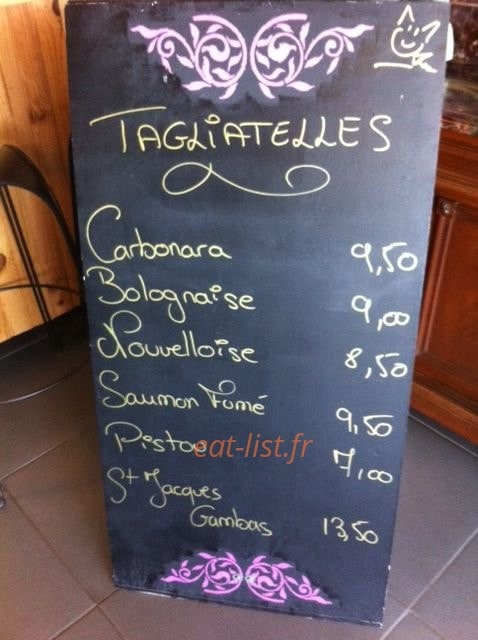 TAGLIATELLES
Carbonara 9,50
Bolognaise 9,00
Nouvelloise 8,50
Saumon Fumé 9,50
Pistou 7,00
eat-list.fr
St Jacques
Gambas 13,50